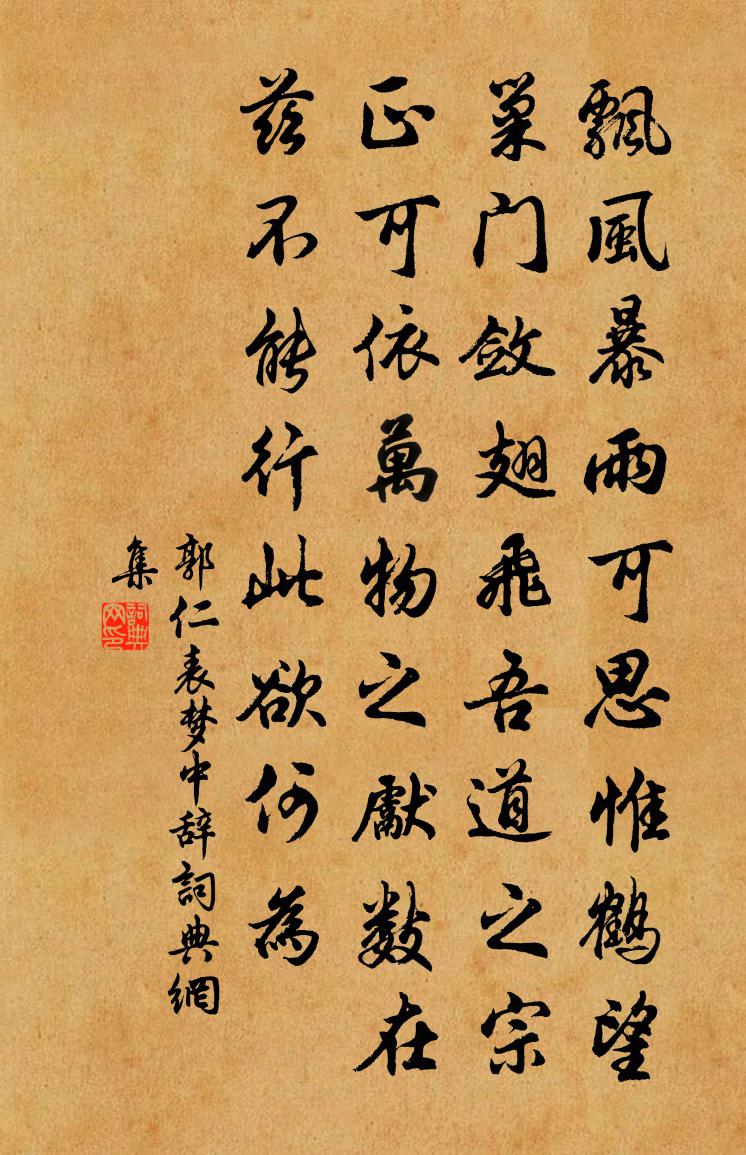 飄風暴雨可思惟鶴望
巢门斂翅飛吾道之宗
正可依萬物之獻數在
茲不能行此欲何為
郭仁表梦中辞詞典網
集
詞典网印